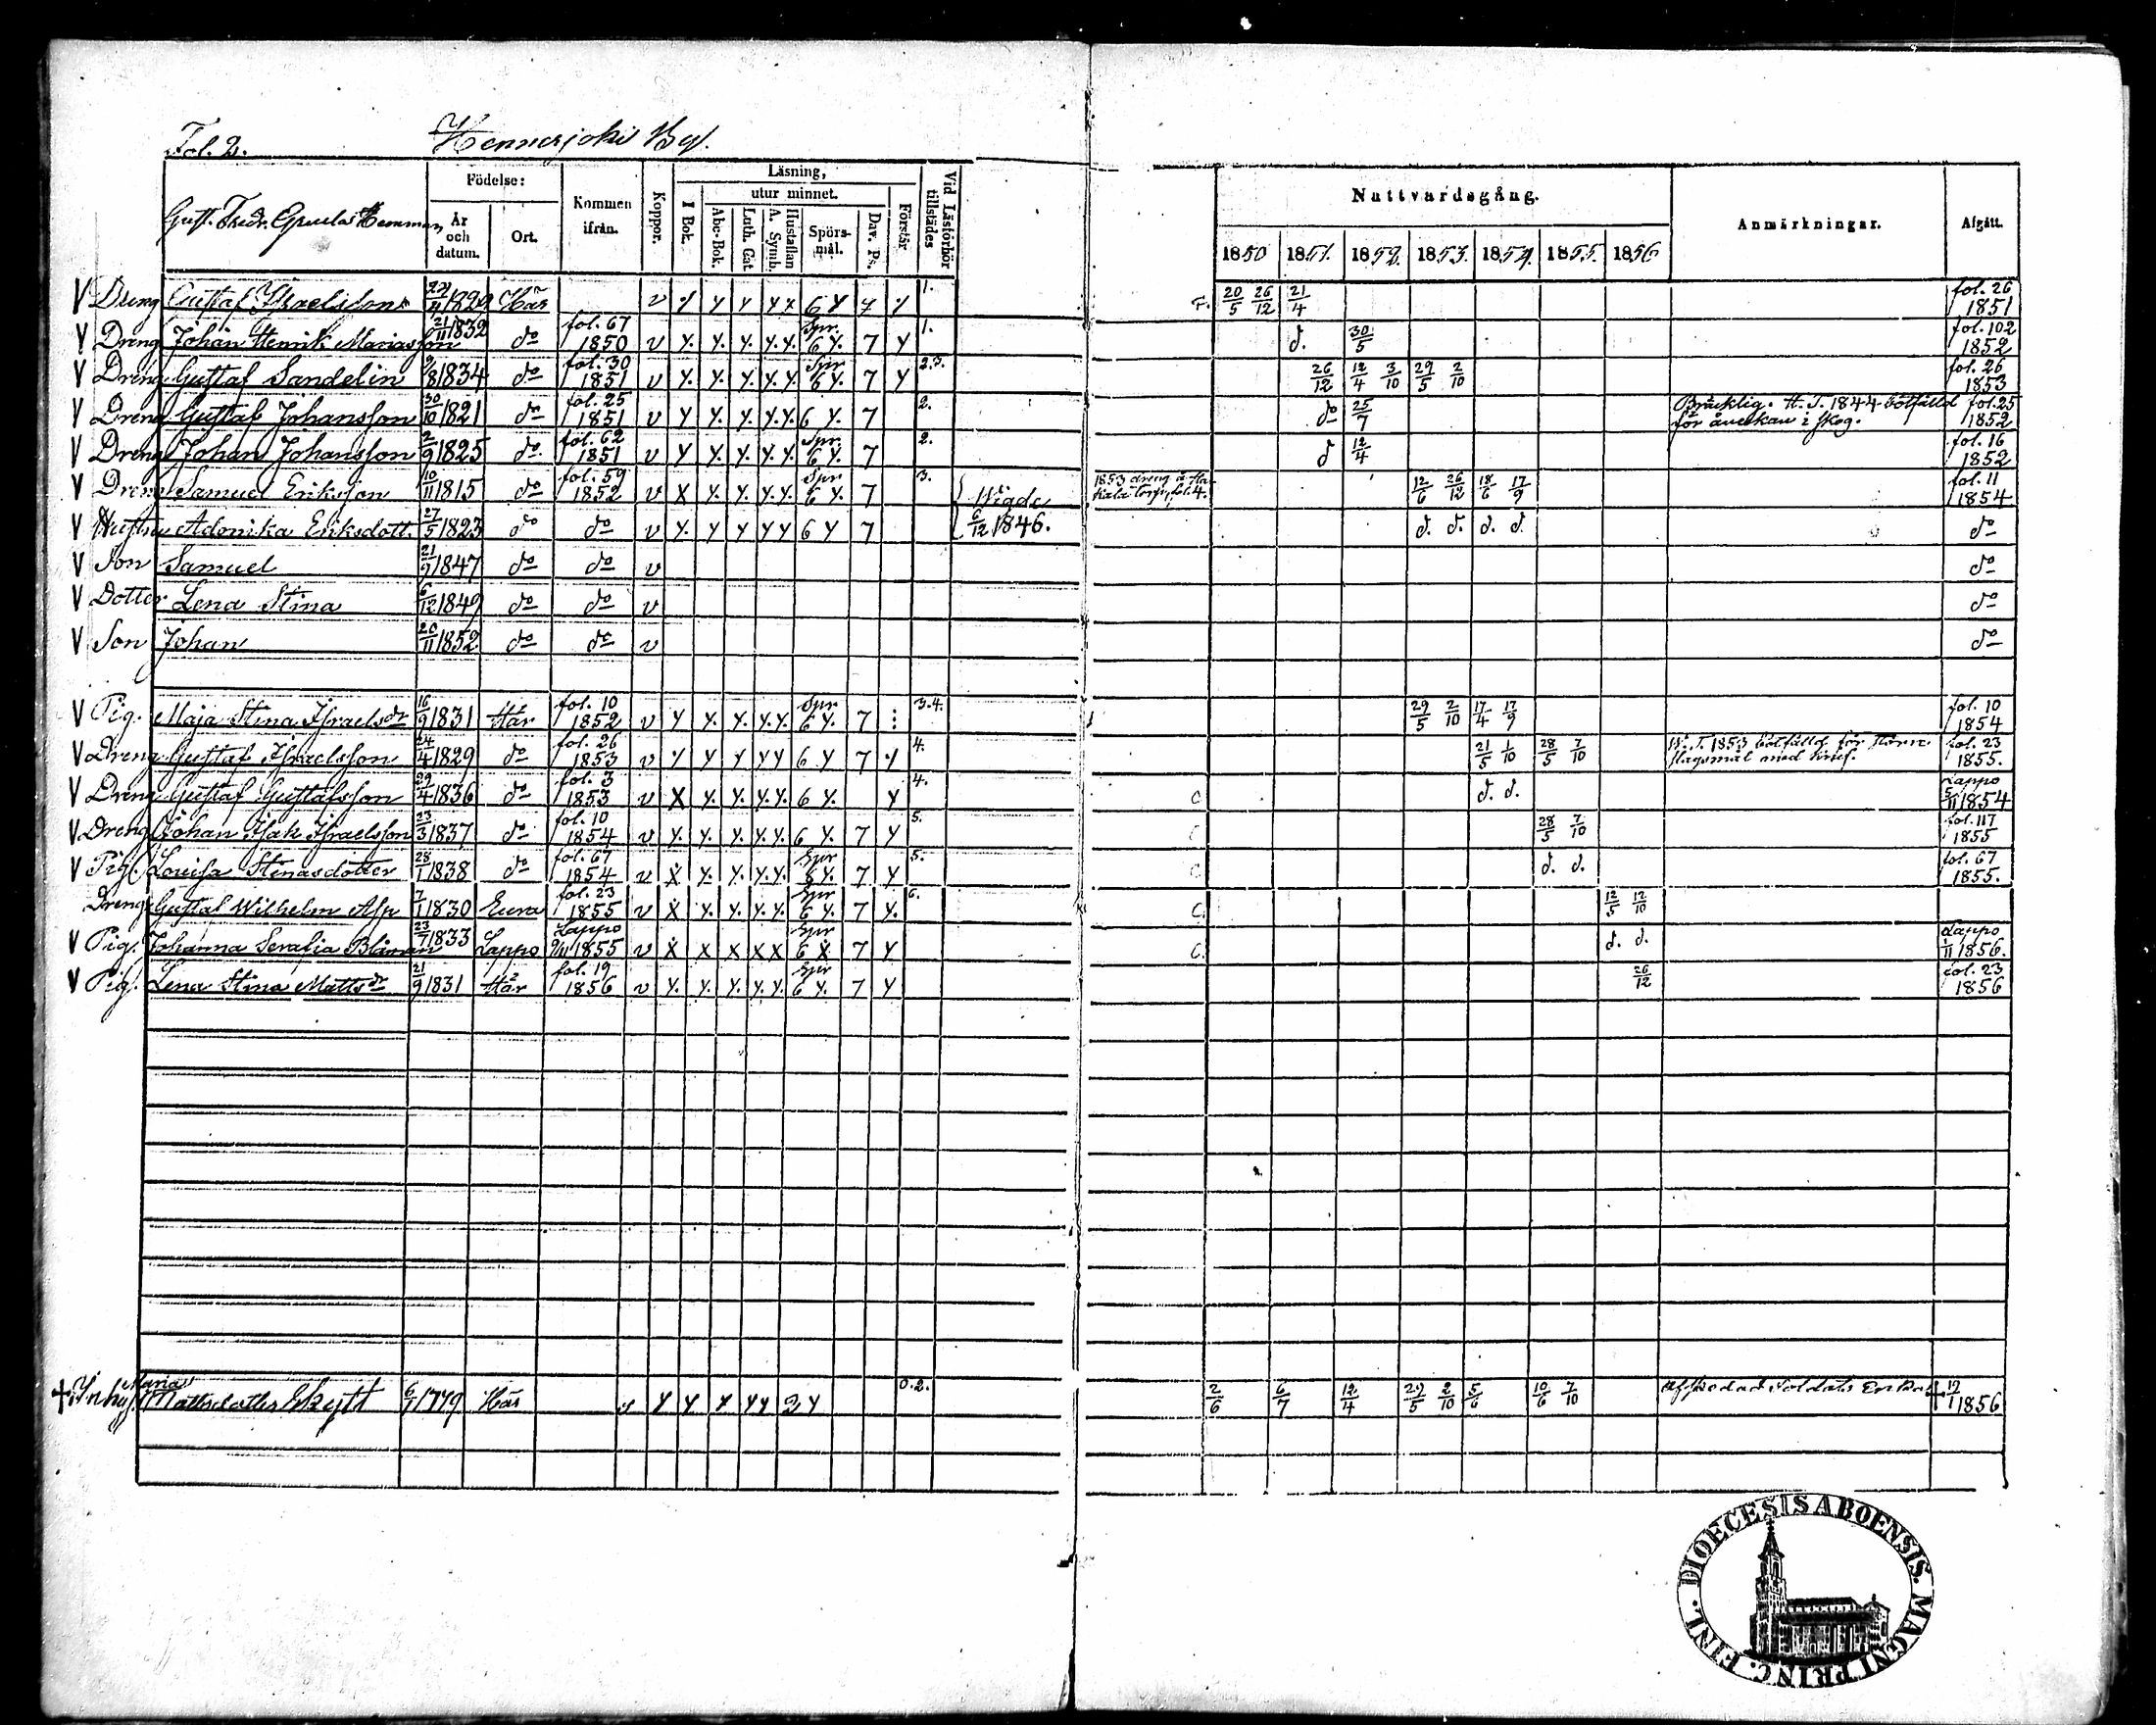 Fol. 2. Hennerjoki By.
Födelse: Läsning, Nattvardsgång.
Kommen ifrån. Koppor. I Bok. utur minnet. Förstår Vid Läsförhör tillstädes Anmärkningar. Afgått.
År och datum. Ort. Abc-Bok. Luth. Cat A. Symb. Hustaflan Spörsmål. Dav. Ps.
1850 1851. 1852. 1853. 1854. 1855. 1856
V Dreng Gustaf Israelsson 24/4 1829 Här v y y y y x 6 y 7 y 1. F. 20/5 26/12 21/4 fol. 26 1851
V Dreng Johan Henrik Mariasson 21/11 1832 do fol. 67 1850 v y. y. y. y. y. Spr. 6 y. 7 y 1. d. 30/5 fol. 102 1852
V Dreng Gustaf Sandelin 9/8 1834 do fol. 30 1851 v y. y. y. y. y. Spr 6 y. 7 y 2.3. 26/12 12/4 3/10 29/5 2/10 fol. 26 1853
V Dreng Gustaf Johansson 30/10 1821 do fol. 25 1851 v y y. y. y. y. 6 y. 7 2. do 25/7 Bräcklig. H. T. 1844 bötfälld för åverkan i skog. fol. 25 1852
V Dreng Johan Johansson 2/9 1825 do fol. 62 1851 v y y. y. y. y. Spr. 6 y. 7 2. d 12/4 fol. 16 1852
V Dreng Samuel Eriksson 10/11 1815 do fol. 59 1852 v x y. y. y. y. Spr 6 y. 7 3. Wigde 1853 dreng å torp, fol. 4. 12/6 26/12 18/6 17/9 fol. 11 1854
V Hustru Adonika Eriksdott. 27/5 1823 do do v y. y y y y 6 y 7 6/12 1846. d. d. d. d. do
V Son Samuel 21/9 1847 do do v do
V Dotter Lena Stina 6/12 1849 do do v do
V Son Johan 20/11 1852 do do v do
V Pig. Maja Stina Israelsdr 16/9 1831 Här fol. 10 1852 v y y. y. y. y. Spr 6 y. 7 : 3.4. 29/5 2/10 17/4 17/9 fol. 10 1854
V Dreng Gustaf Israelsson 24/4 1829 do fol. 26 1853 v y y y y y 6 y 7 y 4. 21/5 1/10 28/5 7/10 T. 1853 bötfälld för slagsmål med knif. fol. 23 1855.
V Dreng Gustaf Gustafsson 29/4 1836 do fol. 3 1853 v x y. y. y. y. 6 y. y 4. C d. d. Lappo 5/11 1854
V Dreng Johan Isak Israelsson 23/3 1837 do fol. 10 1854 v y. y. y. y. y. 6 y. 7 y 5. C 28/5 7/10 fol. 117 1855
V Pig. Lovisa Stinasdotter 28/1 1838 do fol. 67 1854 v x y. y. y. y. Spr 6 y. 7 y 5. C d. d. fol. 67 1855.
Dreng Gustaf Wilhelm Asp 7/1 1830 Eura fol. 23 1855 v x y. y. y. y. Spr 6 y. 7 y. 6. C. 12/5 12/10
V Pig. Johanna Serafia Blåman 23/7 1833 Lappo Lappo 9/11 1855 v x x x x x Spr 6 x 7 y C. d. d. Lappo 1/11 1856.
V Pig. Lena Stina Mattsdr 21/9 1831 Här fol. 19 1856 v y. y. y. y. y. Spr 6 y. 7 y 26/12 fol. 23 1856
+ Inhys. Maria Mattsdotter Skytt 6/7 1779 Här y y x y y 2 y 0.2. 2/6 6/7 12/4 29/5 2/10 5/6 10/6 7/10 Afskedad Soldats Enka + 19/1 1856
DIOECESIS ABOENSIS. MAGNI PRINC. FINL.